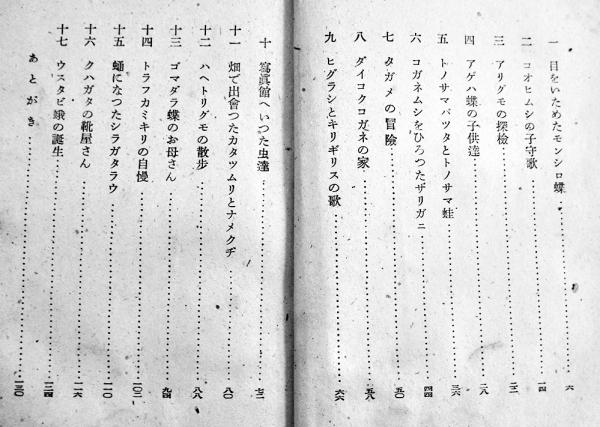 一 目をいためたモンシロ蝶 六
二 コオヒムシの子守歌 一四
三 アリグモの探檢 二二
四 アゲハ蝶の子供達 二八
五 トノサマバツタとトノサマ蛙 三六
六 コガネムシをひろつたザリガニ 四四
七 タガメの冒險 五〇
八 ダイコクコガネの家 五八
九 ヒグラシとキリギリスの歌 六六
十 寫眞館へいつた虫達 七二
十一 畑で出會つたカタツムリとナメクヂ 八〇
十二 ハヘトリグモの散步 八八
十三 ゴマダラ蝶のお母さん 九四
十四 トラフカミキリの自慢 一〇二
十五 蛹になつたシラガタラウ 一一〇
十六 クハガタの靴屋さん 一一六
十七 ウスタビ蛾の誕生 一二四
あとがき 一三〇